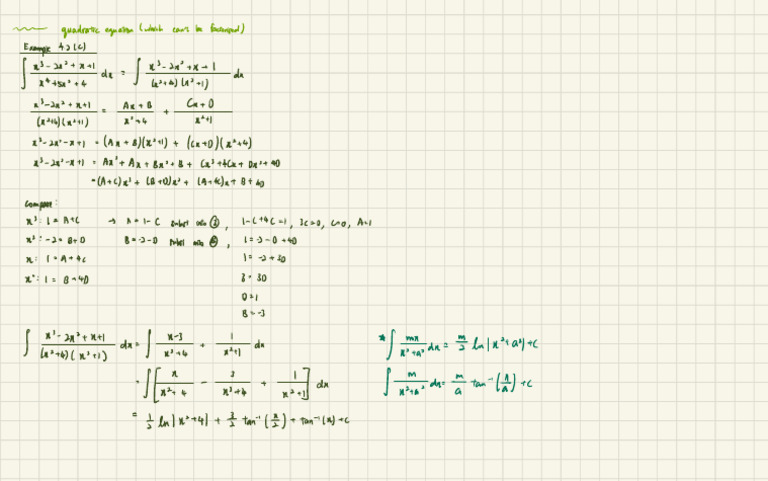 quadratic equation (which can't be factorised)
Example 4.2 (c)
∫ (x³ - 2x² + x + 1)/(x⁴ + 5x² + 4) dx = ∫ (x³ - 2x² + x + 1)/((x²+4)(x²+1)) dx
(x³ - 2x² + x + 1)/((x²+4)(x²+1)) = (Ax + B)/(x²+4) + (Cx + D)/(x²+1)
x³ - 2x² - x + 1 = (Ax + B)(x²+1) + (Cx + D)(x²+4)
x³ - 2x² - x + 1 = Ax³ + Ax + Bx² + B + Cx³ + 4Cx + Dx² + 4D
= (A+C)x³ + (B+D)x² + (A+4C)x + B + 4D
Compare:
x³: 1 = A+C → A = 1 - C subst into ③, 1 - C + 4C = 1, 3C = 0, C = 0, A = 1
x²: -2 = B+D B = -2 - D subst into ④, 1 = -2 - D + 4D
x: 1 = A + 4C 1 = -2 + 3D
x⁰: 1 = B + 4D 3 = 3D
D = 1
B = -3
∫ (x³ - 2x² + x + 1)/((x²+4)(x²+1)) dx = ∫ (x-3)/(x²+4) + 1/(x²+1) dx
= ∫[x/(x²+4) - 3/(x²+4) + 1/(x²+1)] dx
= 1/2 ln|x²+4| + 3/2 tan⁻¹(x/2) + tan⁻¹(x) + c
* ∫ mx/(x²+a²) dx = m/2 ln|x²+a²| + c
∫ m/(x²+a²) dx = m/a tan⁻¹(x/a) + c